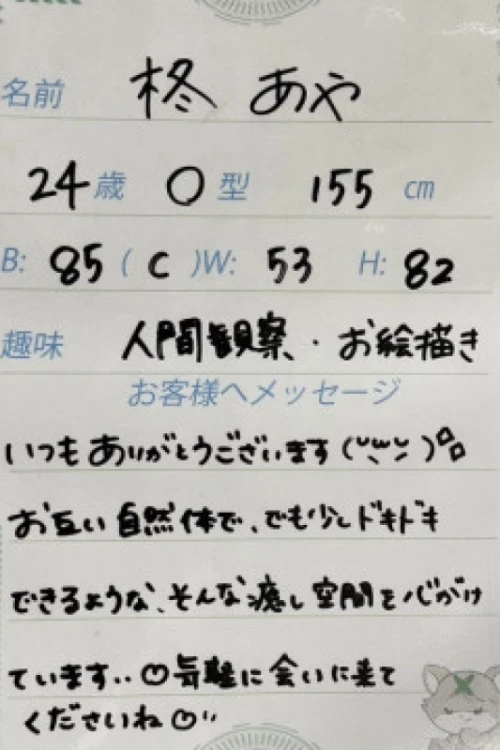 名前 柊 あや
24歳 O型 155cm
B: 85 (C)W: 53 H: 82
趣味 人間観察・お絵描き
お客様へメッセージ
いつもありがとうございます
お互い自然体で、でも少しドキドキ
できるような、そんな癒し空間を心がけ
ています..♡気軽に会いに来て
くださいね♡